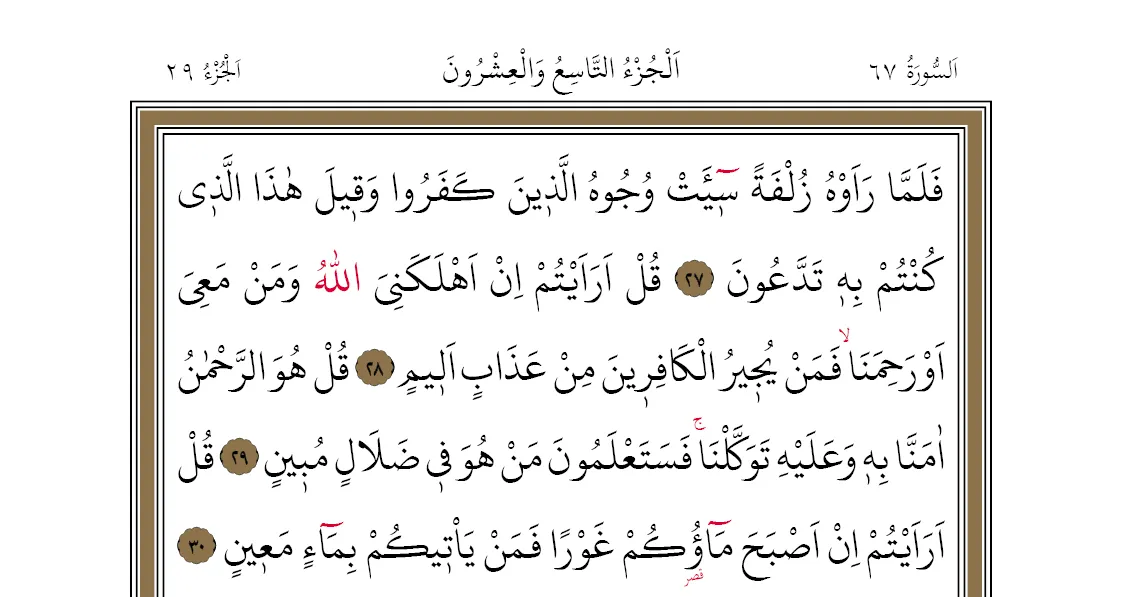 اَلسُّورَةُ ٦٧ اَلْجُزْءُ التَّاسِعُ وَالْعِشْرُونَ اَلْجُزْءُ ٢٩
فَلَمَّا رَاَوْهُ زُلْفَةً سٓيـَٔتْ وُجُوهُ الَّذ۪ينَ كَفَرُوا وَق۪يلَ هٰذَا الَّذ۪ى
كُنْتُمْ بِه۪ تَدَّعُونَ ٢٧ قُلْ اَرَاَيْتُمْ اِنْ اَهْلَكَنِىَ اللّٰهُ وَمَنْ مَعِىَ
اَوْرَحِمَنَاۙ فَمَنْ يُج۪يرُ الْكَافِر۪ينَ مِنْ عَذَابٍ اَل۪يمٍ ٢٨ قُلْ هُوَ الرَّحْمٰنُ
اٰمَنَّا بِه۪ وَعَلَيْهِ تَوَكَّلْنَاۚ فَسَتَعْلَمُونَ مَنْ هُوَ ف۪ى ضَلَالٍ مُب۪ينٍ ٢٩ قُلْ
اَرَاَيْتُمْ اِنْ اَصْبَحَ مَٓاؤُ۬كُمْ غَوْرًا فَمَنْ يَاْت۪يكُمْ بِمَٓاءٍ مَع۪ينٍ ٣٠
قصر